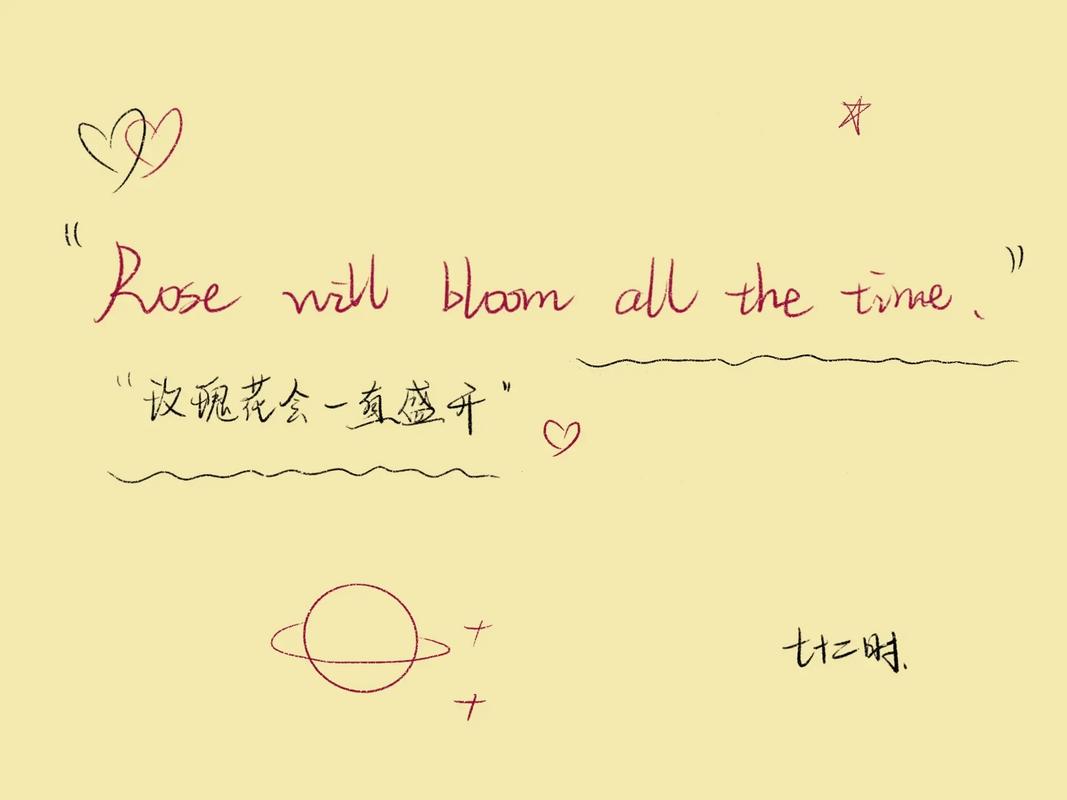 "Rose will bloom all the time.”
"玫瑰花会一直盛开"
七十二时.